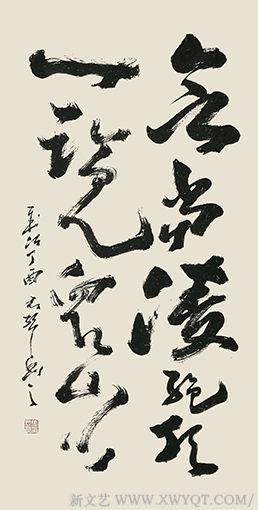 会当凌绝顶
一览众山小
岁次丁酉
新文艺 WWW.XWYQT.COM/